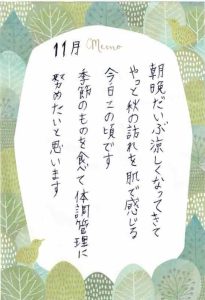 11月 Memo
朝晩だいぶ涼しくなってきて
やっと秋の訪れを肌で感じる
今日この頃です
季節のものを食べて体調管理に
努めたいと思います